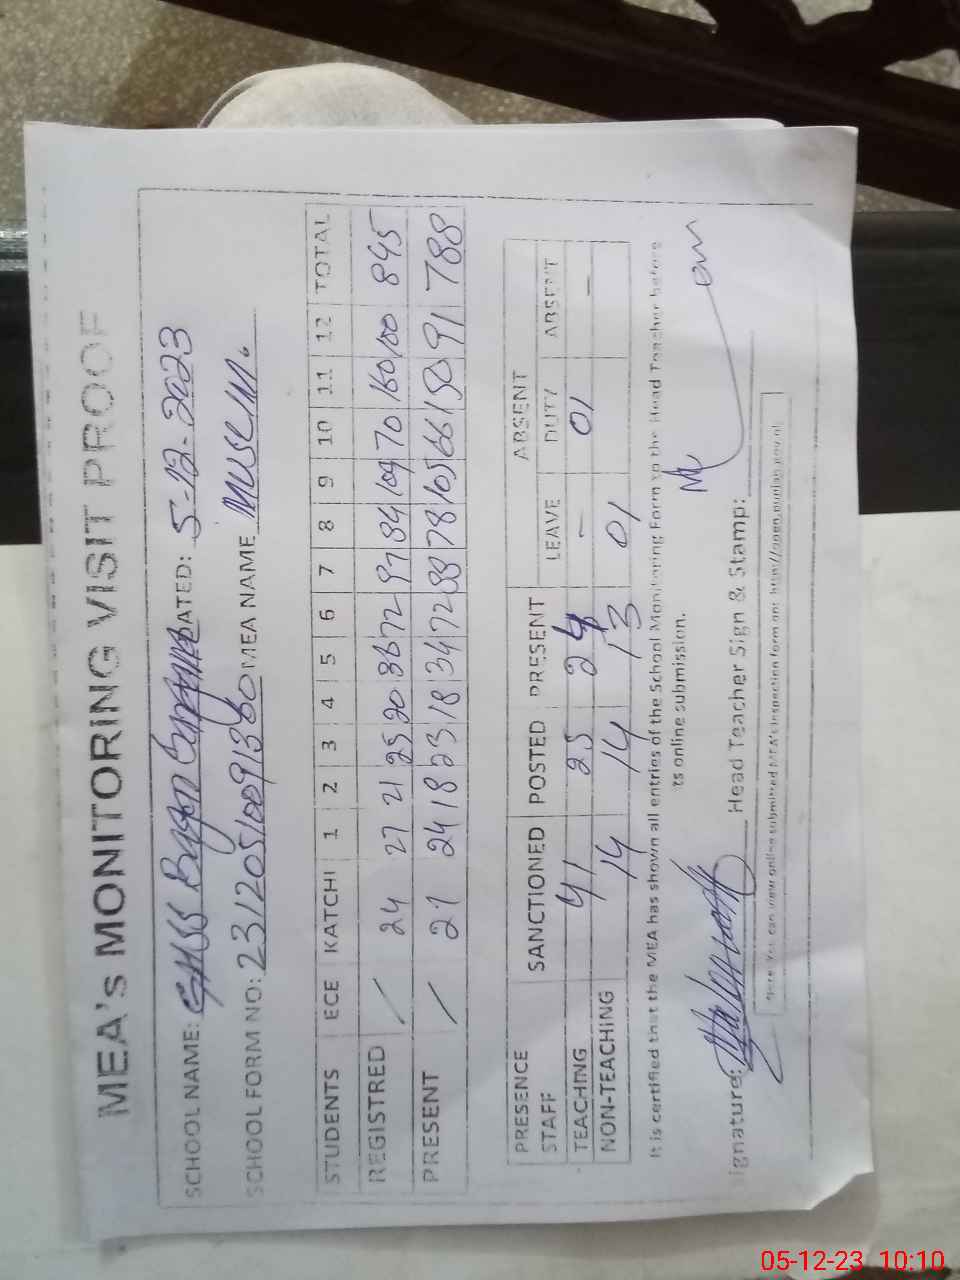 MEA's MONITORING VISIT PROOF
SCHOOL NAME: GHSS DATED: 5-12-2023
SCHOOL FORM NO: MEA NAME
STUDENTS ECE KATCHI 1 2 3 4 5 6 7 8 9 10 11 12 TOTAL
REGISTRED / 24 27 21 25 20 36 72 97 84 109 70 160 100 845
PRESENT / 21 24 18 23 18 34 72 88 78 105 66 150 91 788
PRESENCE SANCTIONED POSTED PRESENT ABSENT
STAFF LEAVE DUTY ABSENT
TEACHING 41 25 24 - 01 -
NON-TEACHING 14 14 13 01
It is certified that the MEA has shown all entries of the School Monitoring Form to the Head Teacher before
its online submission.
Signature: Head Teacher Sign & Stamp:
Note: You can view online submitted MEA's inspection form on: http://open.punjab.gov.pk
05-12-23 10:10